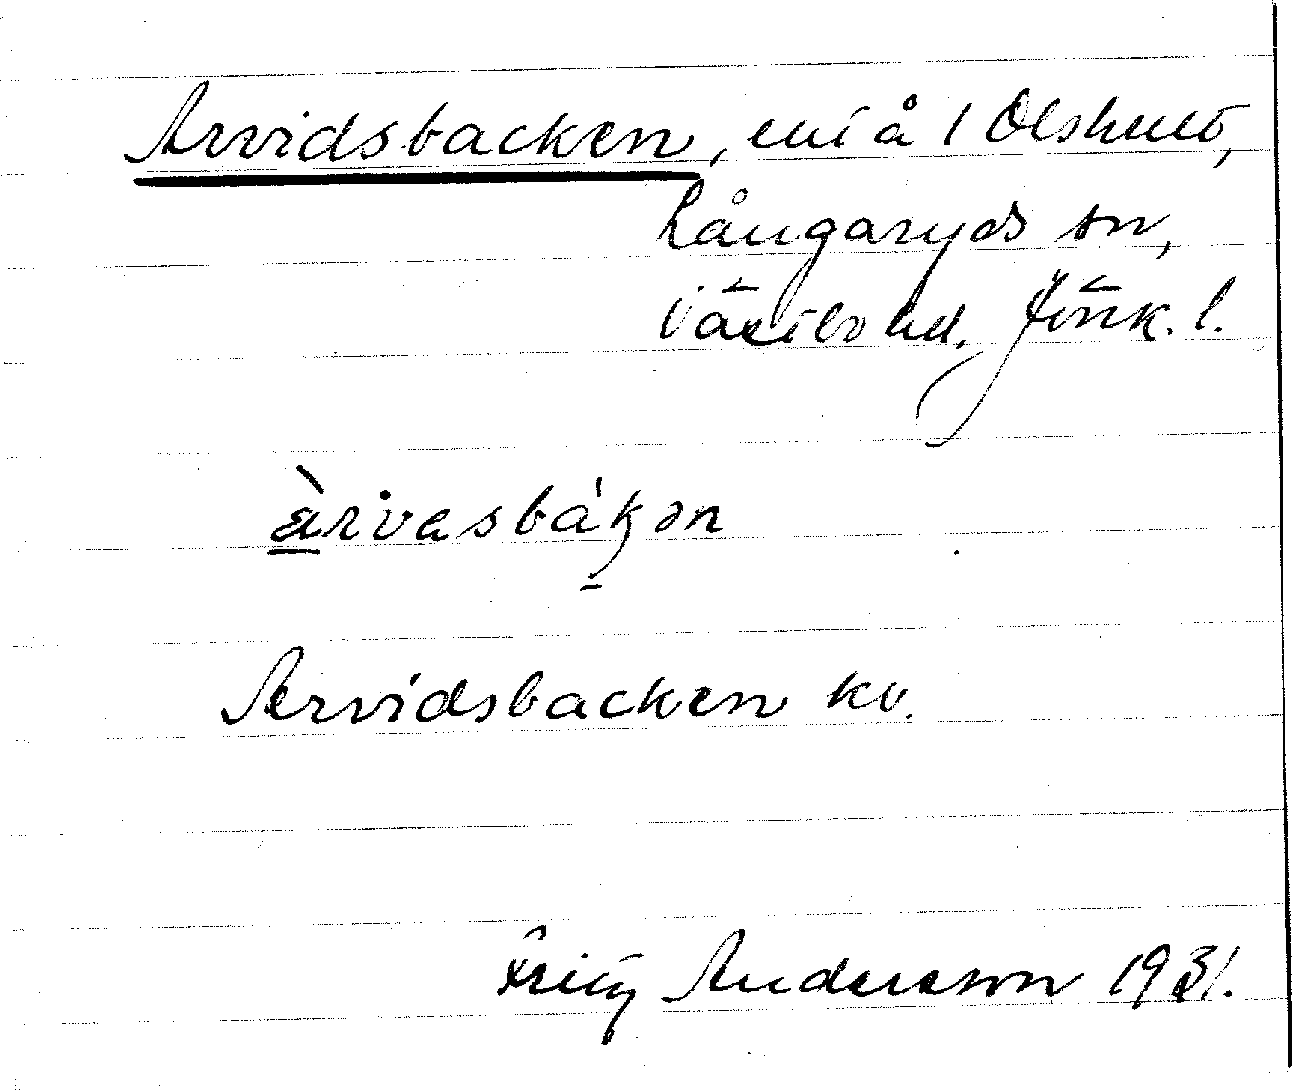 Arvidsbacken, på 1 Olshult,
Långaryds sn,
Västbo hd. Jönk. l.
ärvasbakən
Arvidsbacken kv.
Fritz Anderson 1931.